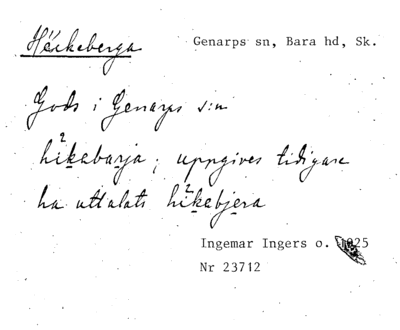 Häckeberga
Genarps sn, Bara hd, Sk.
Gods i Genarps s:n
hi²kebarja; uppgives tidigare
ha uttalats hi²kebjera
Ingemar Ingers o. 1925
Nr 23712